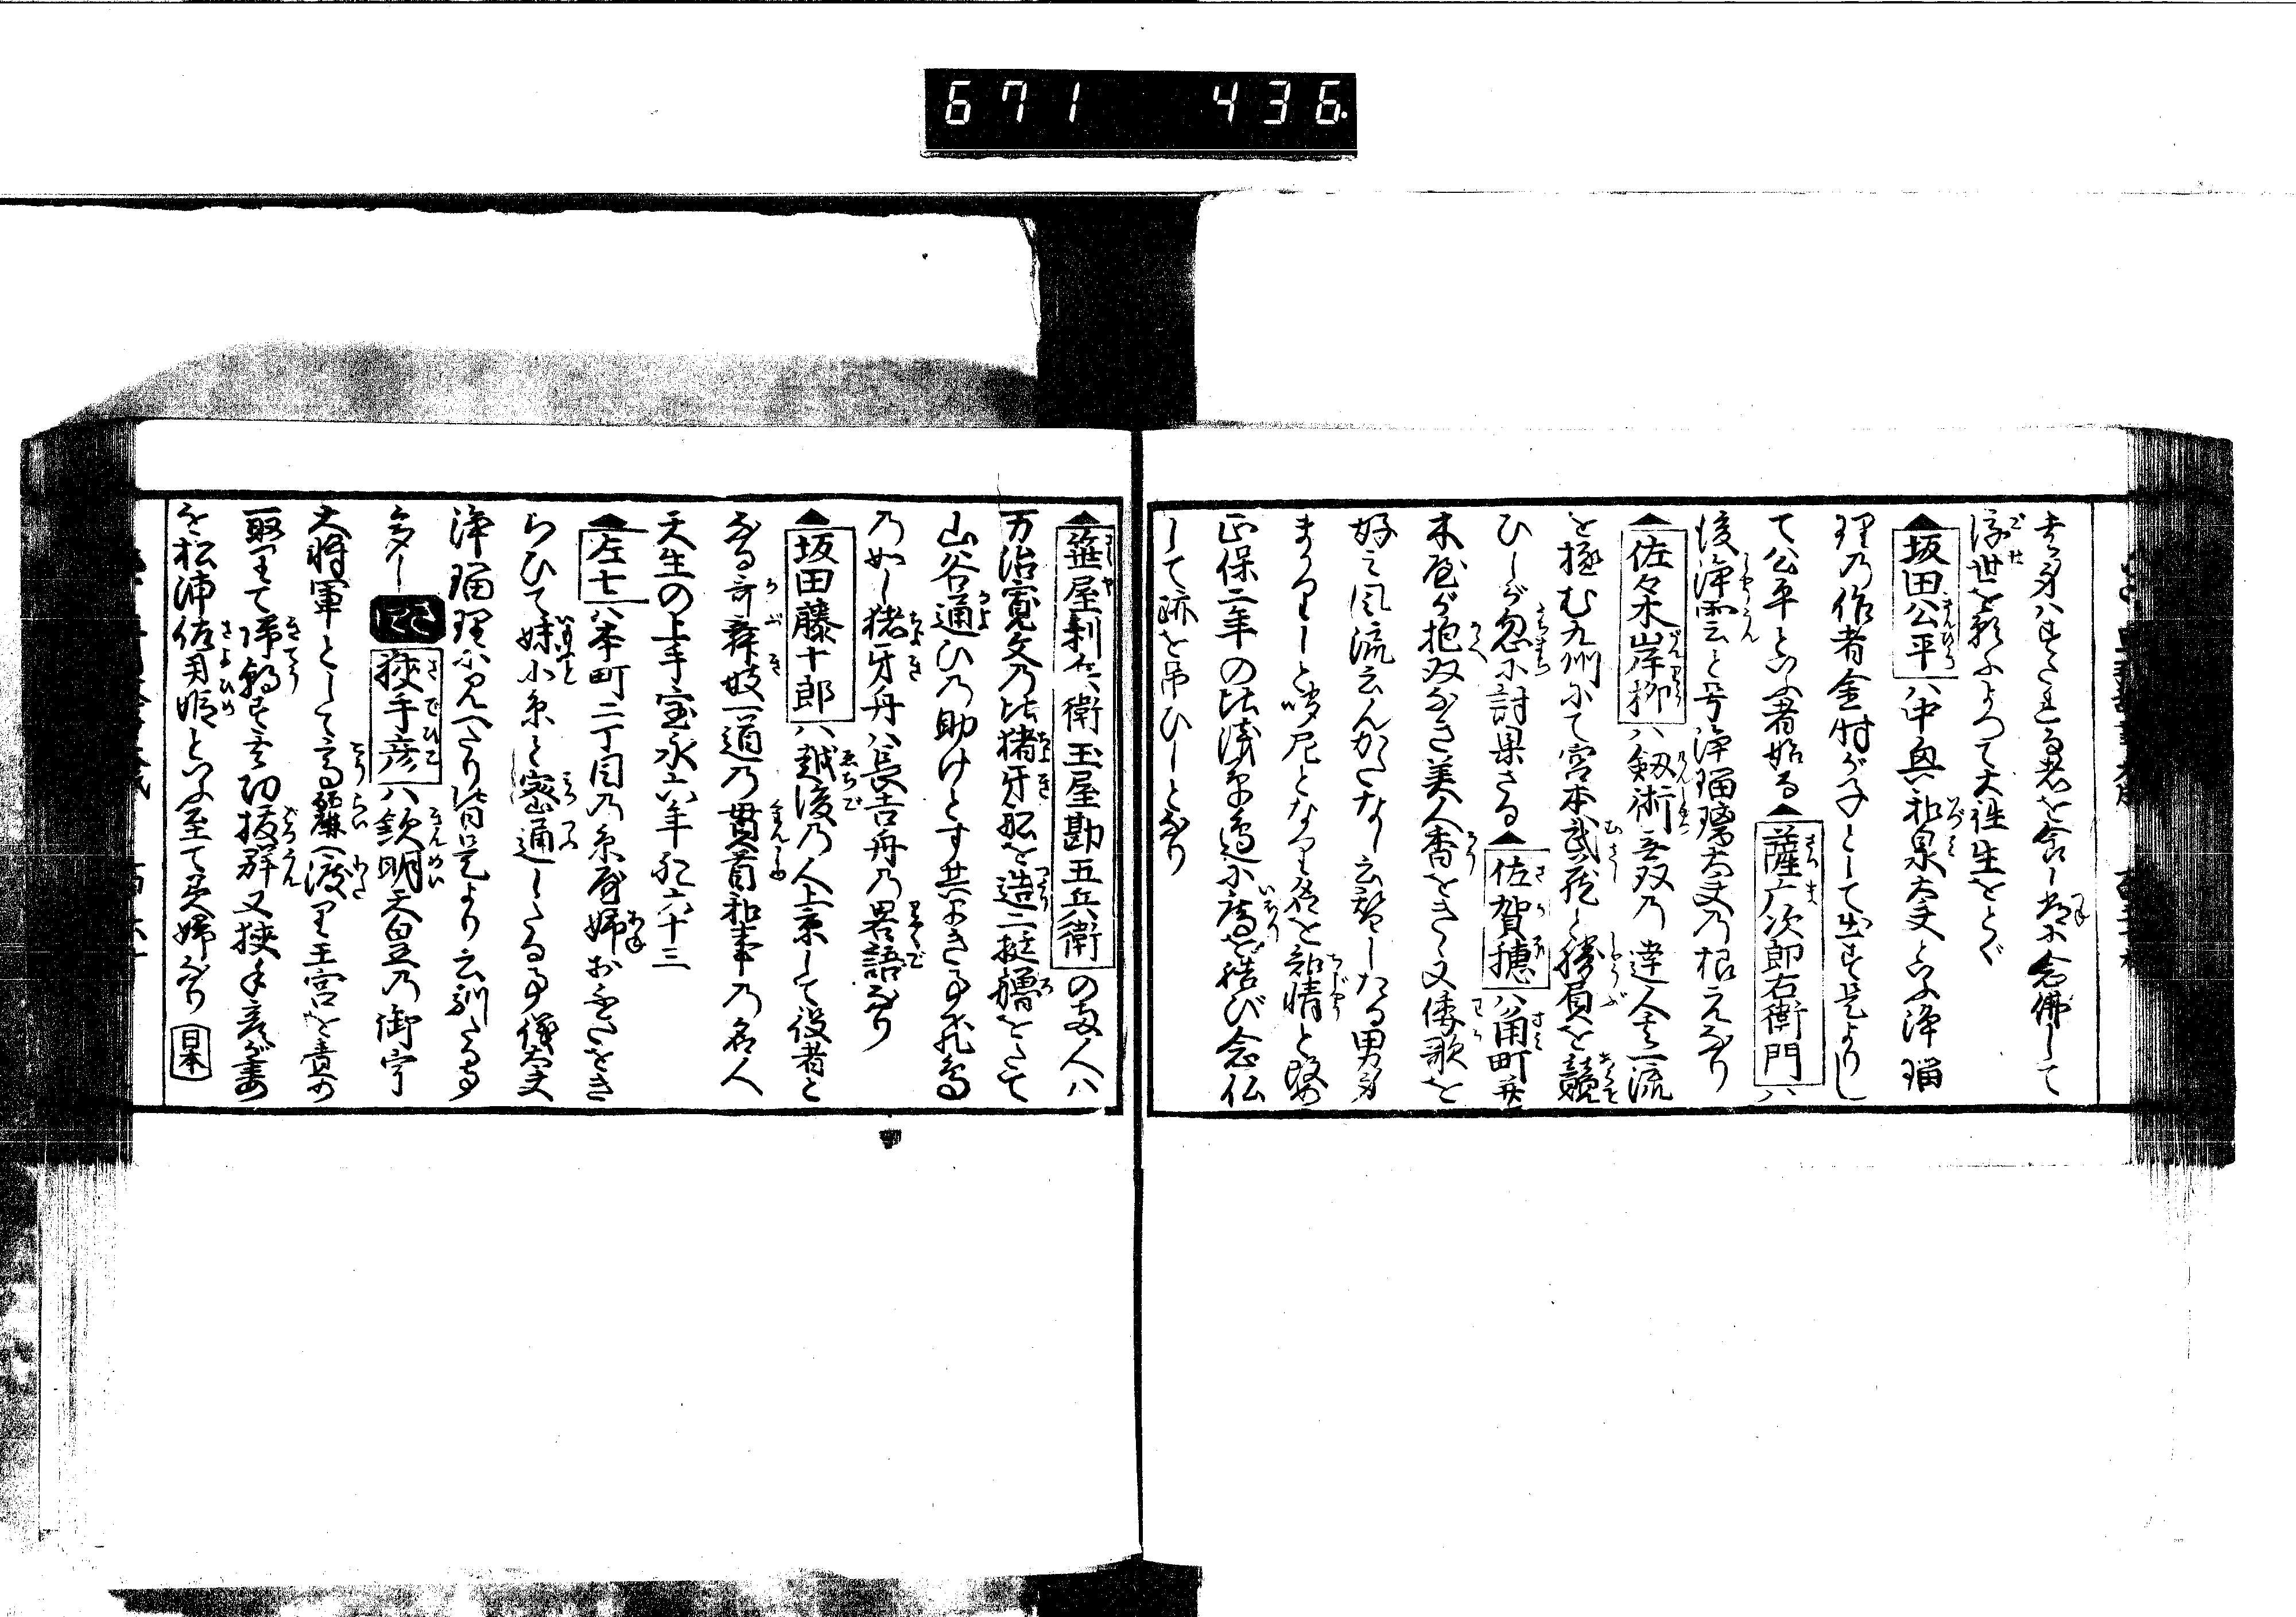 671 436
まる身ハすたれる恩を舎し常念佛して
浮世を厭ふよつて大往生をとぐ
▲坂田公平ハ中興和泉太夫といふ浄瑠
理乃作者金時が子として出す是よりし
て公平といふ者始る▲薩广次郎右衛門ハ
後浄雲と号浄瑠璃太夫乃根元なり
▲佐々木岸柳ハ剱術無双乃達人会一流
を極む九州にて宮本武蔵と勝負を競
ひしが忽に討果さる▲佐賀穂ハ角町茨
木屋が抱双なき美人香をきく又倭歌を
好之風流云んかたなし云髪したる男身
まかりしと聞尼となり名を知情と改
正保二年の比浅草邊に庵を結び念仏
して跡を吊ひしとなり
▲笹屋利兵衛玉屋勘五兵衛の両人ハ
万治寛文乃比猪牙舩を造二挺艪をたて
山谷通ひ乃助けとす共はやき事飛鳥
乃如し猪牙舟ハ長吉舟乃畧語なり
▲坂田藤十郎ハ越後乃人上京して役者と
なる哥舞妓一道乃貫首和事乃名人
天生の上手宝永六年死六十三
▲左七ハ本町二丁目乃糸屋姉おふさをき
らひて妹小糸と密通したる事儀太夫
浄瑠理に見へたり皆是より云馴たる事
多し さで 狭手彦ハ欽明天皇乃御宇
大将軍として高麗へ渡り王宮を責め
取りて帰朝す其功抜群又狭手彦が妻
を松浦佐用姫といふ至て美婦なり 日本